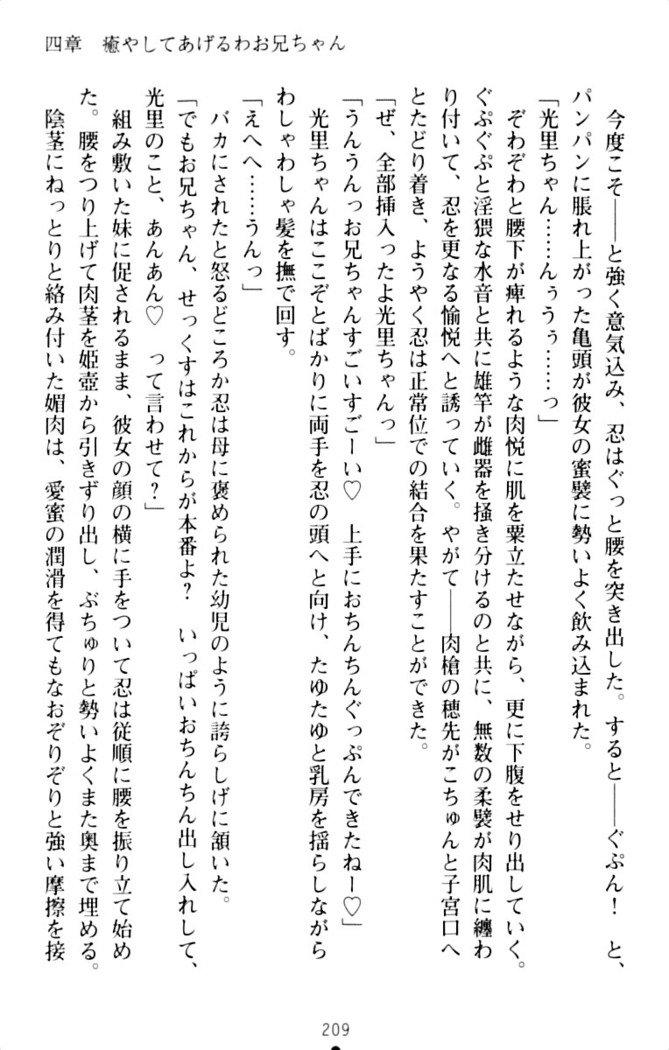 四章　癒やしてあげるわお兄ちゃん
　今度こそ――と強く意気込み、忍はぐっと腰を突き出した。すると――ぐぷん！　と、
パンパンに脹れ上がった亀頭が彼女の蜜襞に勢いよく飲み込まれた。
「光里ちゃん……んぅうぅ……っ」
　ぞわぞわと腰下が痺れるような肉悦に肌を粟立たせながら、更に下腹をせり出していく。
ぐぷぐぷと淫猥な水音と共に雄竿が雌器を掻き分けるのと共に、無数の柔襞が肉肌に纏わ
り付いて、忍を更なる愉悦へと誘っていく。やがて――肉槍の穂先がこちゅんと子宮口へ
とたどり着き、ようやく忍は正常位での結合を果たすことができた。
「ぜ、全部挿入ったよ光里ちゃんっ」
「うんうんっお兄ちゃんすごいすごーい♡　上手におちんちんぐっぷんできたねー♡」
　光里ちゃんはここぞとばかりに両手を忍の頭へと向け、たゆたゆと乳房を揺らしながら
わしゃわしゃ髪を撫で回す。
「えへへ……うんっ」
　バカにされたと怒るどころか忍は母に褒められた幼児のように誇らしげに頷いた。
「でもお兄ちゃん、せっくすはこれからが本番よ？　いっぱいおちんちん出し入れして、
光里のこと、あんあん♡　って言わせて？」
　組み敷いた妹に促されるまま、彼女の顔の横に手をついて忍は従順に腰を振り立て始め
た。腰をつり上げて肉茎を姫壺から引きずり出し、ぶちゅりと勢いよくまた奥まで埋める。
　陰茎にねっとりと絡み付いた媚肉は、愛蜜の潤滑を得てもなおぞりぞりと強い摩擦を接
209